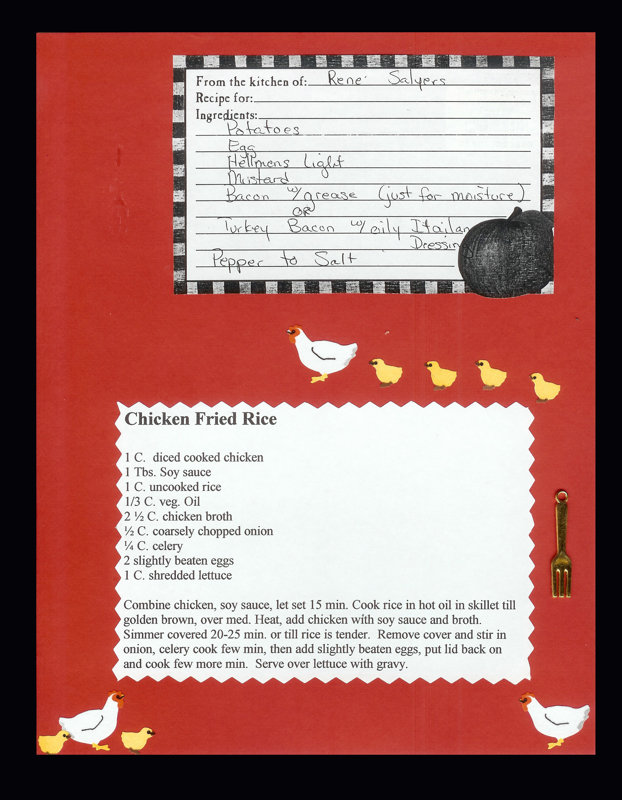 From the kitchen of: Rene' Salyers
Recipe for:
Ingredients:
Potatoes
Egg
Hellmens Light
Mustard
Bacon w/grease (just for moisture)
OR
Turkey Bacon w/oily Itailan
Dressing
Pepper to Salt
Chicken Fried Rice
1 C. diced cooked chicken
1 Tbs. Soy sauce
1 C. uncooked rice
1/3 C. veg. Oil
2 ½ C. chicken broth
½ C. coarsely chopped onion
¼ C. celery
2 slightly beaten eggs
1 C. shredded lettuce
Combine chicken, soy sauce, let set 15 min. Cook rice in hot oil in skillet till
golden brown, over med. Heat, add chicken with soy sauce and broth.
Simmer covered 20-25 min. or till rice is tender. Remove cover and stir in
onion, celery cook few min, then add slightly beaten eggs, put lid back on
and cook few more min. Serve over lettuce with gravy.